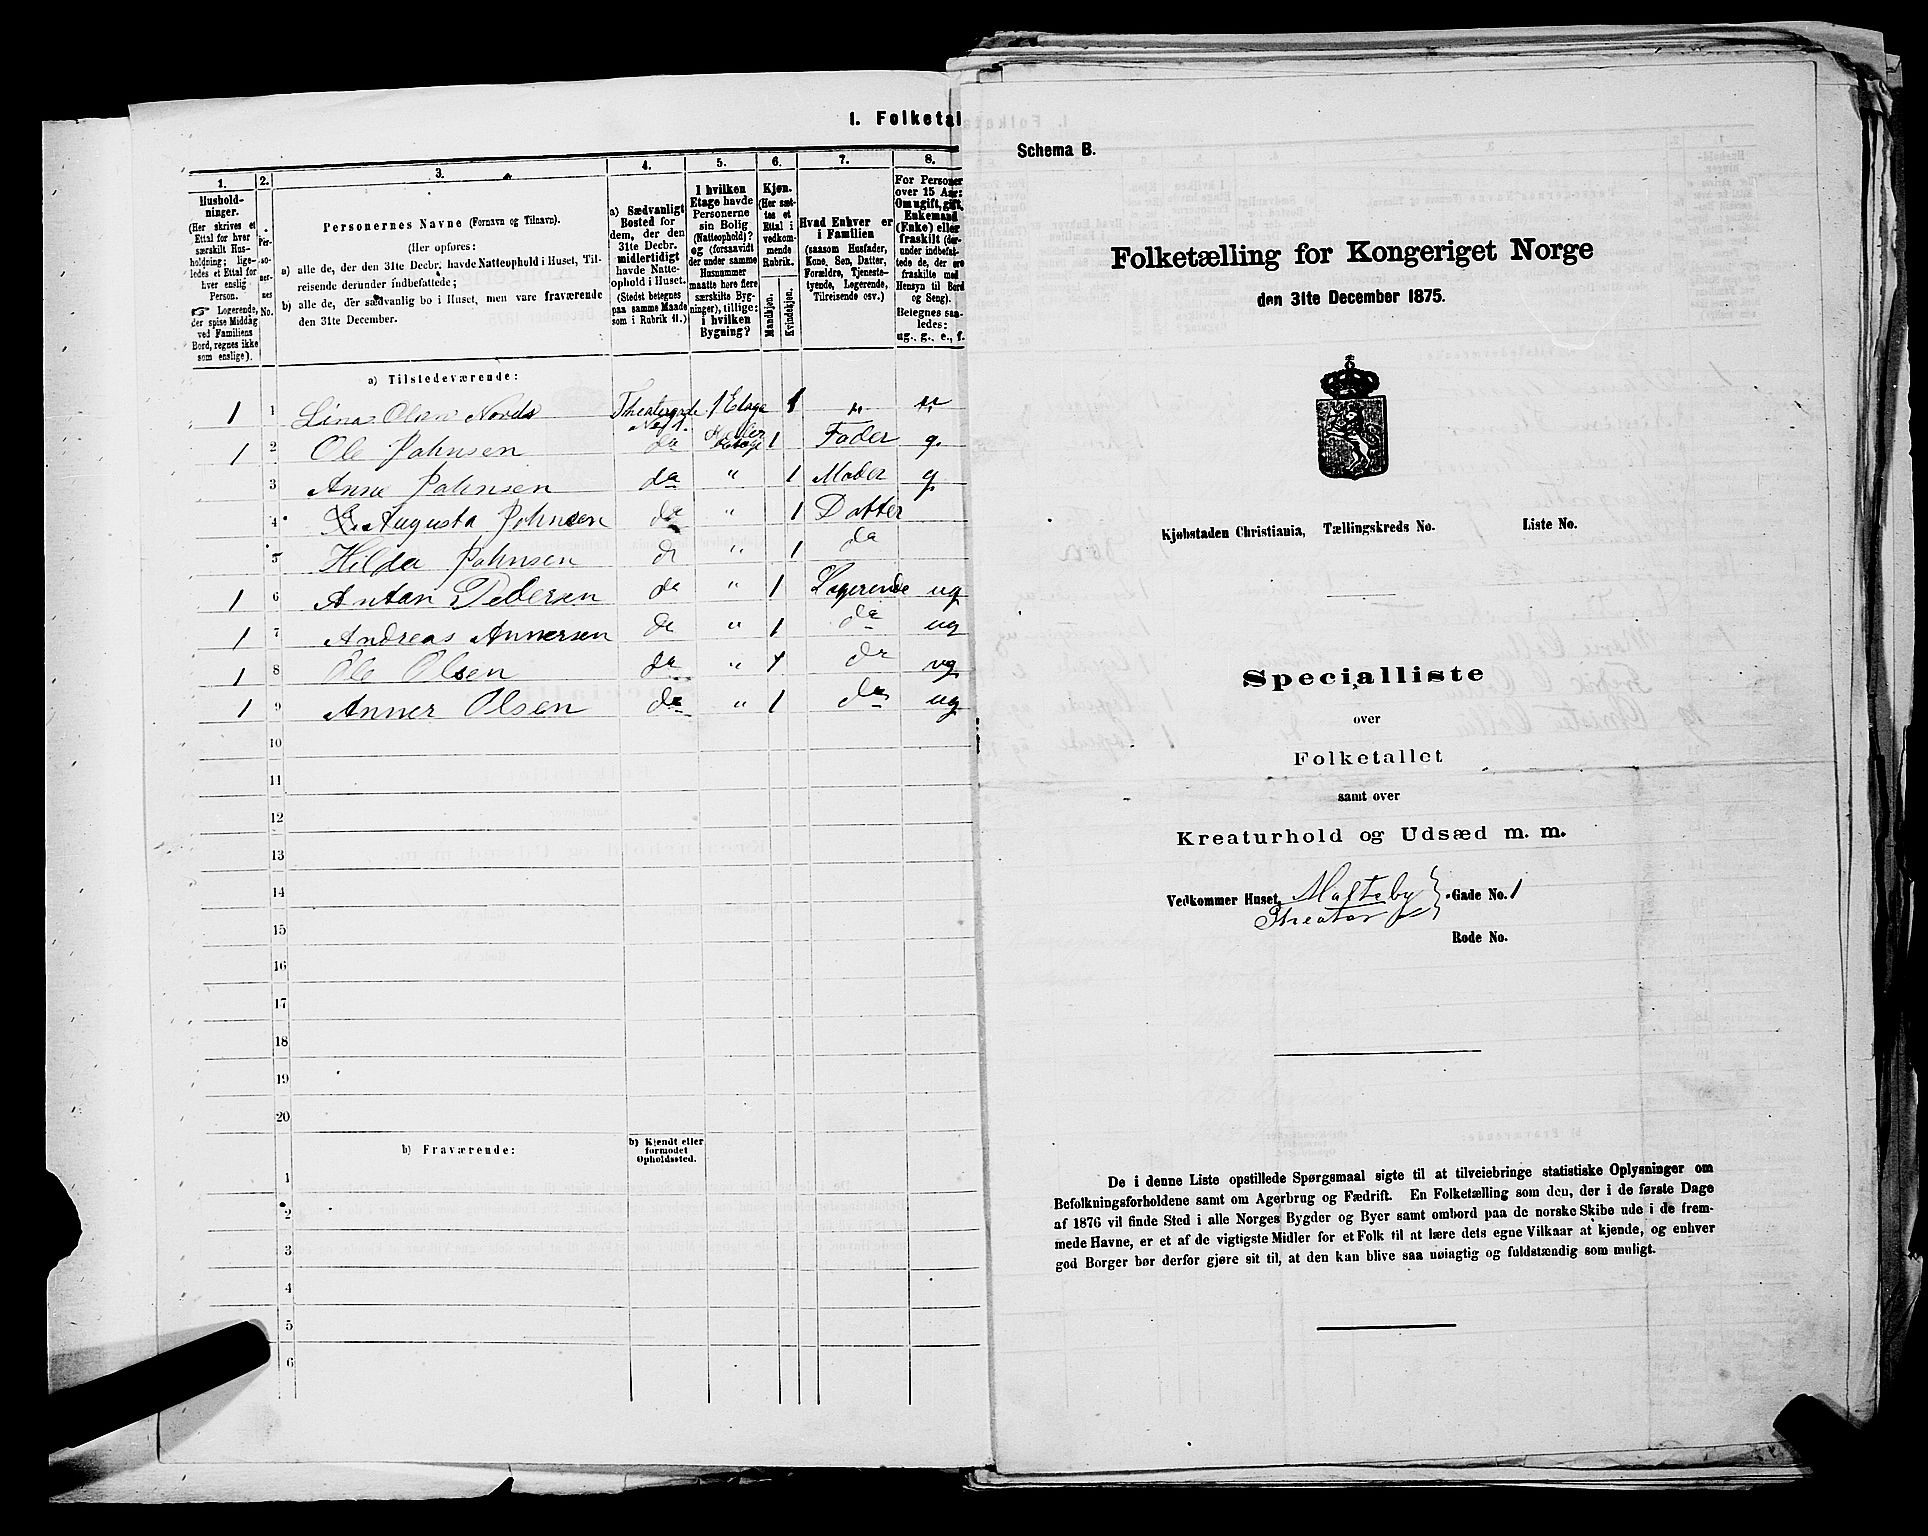 I. Folketal
1.
2.
3.
4.
5.
6.
7.
8.
Hushold-
ninger.
(Her skrives et
Ettal for hver
særskilt Hus-
holdning; lige-
ledes et Ettal for
hver enslig
Person.
☞ Logerende,
der spise Middag
ved Familiens
Bord, regnes ikke
som enslige).
Per-
so-
ner-
nes
No.
Personernes Navne (Fornavn og Tilnavn).
(Her opføres:
a) alle de, der den 31te Decbr. havde Natteophold i Huset, Til-
reisende derunder indbefattede;
b) alle de, der sædvanlig bo i Huset, men vare fraværende
den 31te December.
a) Sædvanligt
Bosted for
dem, der den
31te Decbr.
midlertidigt
havde Natte-
ophold i Huset.
(Stedet betegnes
paa samme Maade
som i Rubrik 11.)
I hvilken
Etage havde
Personerne
sin Bolig
(Natteophold)?
og (forsaavidt
der under samme
Husnummer
maatte høre flere
særskilte Byg-
ninger), tillige:
i hvilken
Bygning?
Kjøn.
(Her sæt-
tes et
Ettal i
vedkom-
mende
Rubrik.
Mandkjøn.
Kvindekjøn.
Hvad Enhver er
i Familien
(saasom Husfader,
Kone, Søn, Datter,
Forældre, Tjeneste-
tyende, Logerende,
Tilreisende osv.)
For Personer
over 15 Aar:
Om ugift, gift,
Enkemand
(Enke) eller
fraskilt (der-
under indbefat-
tede de, der ere
fraskilte med
Hensyn til Bord
og Seng).
Betegnes saa-
ledes:
ug., g., e., f.
a) Tilstedeværende:
1 1 Lina Olsen 1 Etage 1 " "
1 2 Ole Johnsen do 1 Fader g.
3 Anne Johnsen do " 1 Moder g.
4 Augusta Johnsen do " 1 Datter
5 Hilda Johnsen do " 1 do
1 6 Anton Pedersen do " 1 Logerende ug
1 7 Andreas Annersen do " 1 do ug
1 8 Ole Olsen do " 1 do ug
1 9 Anner Olsen do " 1 do ug
10
11
12
13
14
15
16
17
18
19
20
b) Fraværende:
b) Kjendt eller
formodet
Opholdssted.
1
2
3
4
5
6
Schema B.
Folketælling for Kongeriget Norge
den 31te December 1875.
Kjøbstaden Christiania, Tællingskreds No. Liste No.
Specialliste
over
Folketallet
samt over
Kreaturhold og Udsæd m. m.
Vedkommer Huset, Malteby Gade No. 1
Theater
Rode No.
De i denne Liste opstillede Spørgsmaal sigte til at tilveiebringe statistiske Oplysninger om
Befolkningsforholdene samt om Agerbrug og Fædrift. En Folketælling som den, der i de første Dage
af 1876 vil finde Sted i alle Norges Bygder og Byer samt ombord paa de norske Skibe ude i de frem-
mede Havne, er et af de vigtigste Midler for et Folk til at lære dets egne Vilkaar at kjende, og enhver
god Borger bør derfor gjøre sit til, at den kan blive saa nøiagtig og fuldstændig som muligt.